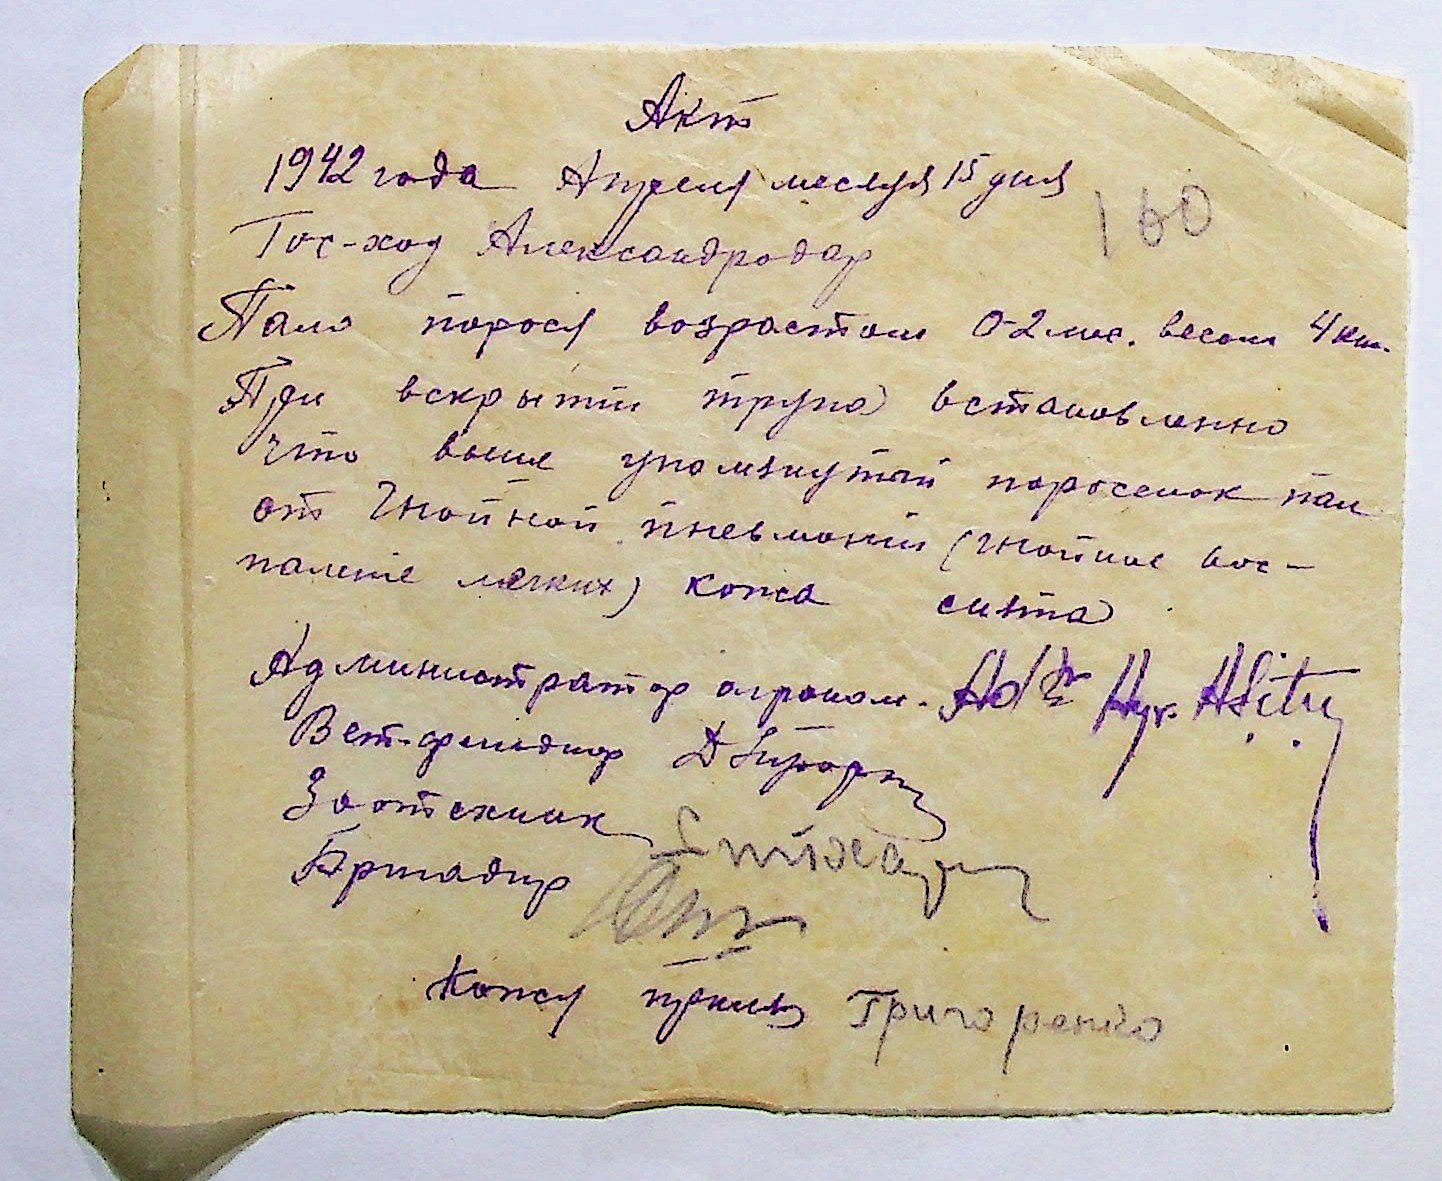 Акт
1942 года Апреля месяця 15 дня
160
Гос-ход Александродар
Пало порося возрастом 0-2 мес. весом 4 кг.
При вскрытии трупа встановленно
что выше упомянутый поросенок пал
от гнойной пневмонии (гнойное вос-
паление легких) кожа снята
Администратор агроном.
Вет-фельдшер
Зоотехник
Бригадир
Кожу принял Григоренко